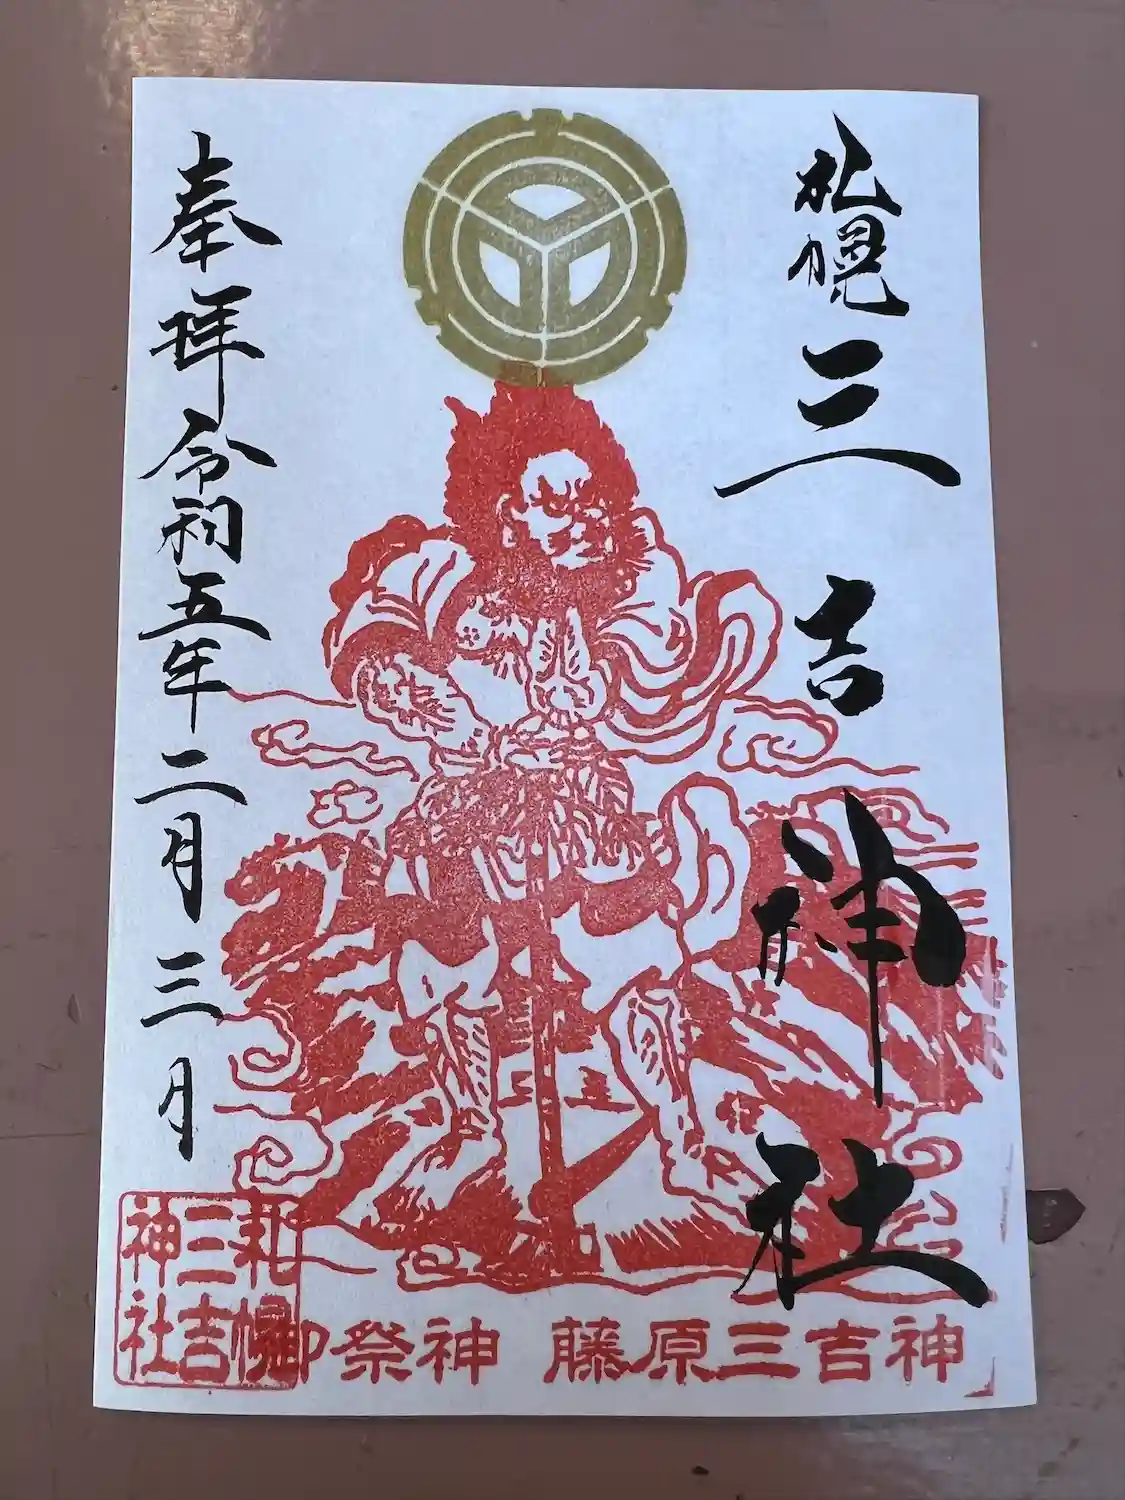 札幌三吉神社
奉拝令和五年二月三日
札幌
三吉
神社
御祭神 藤原三吉神